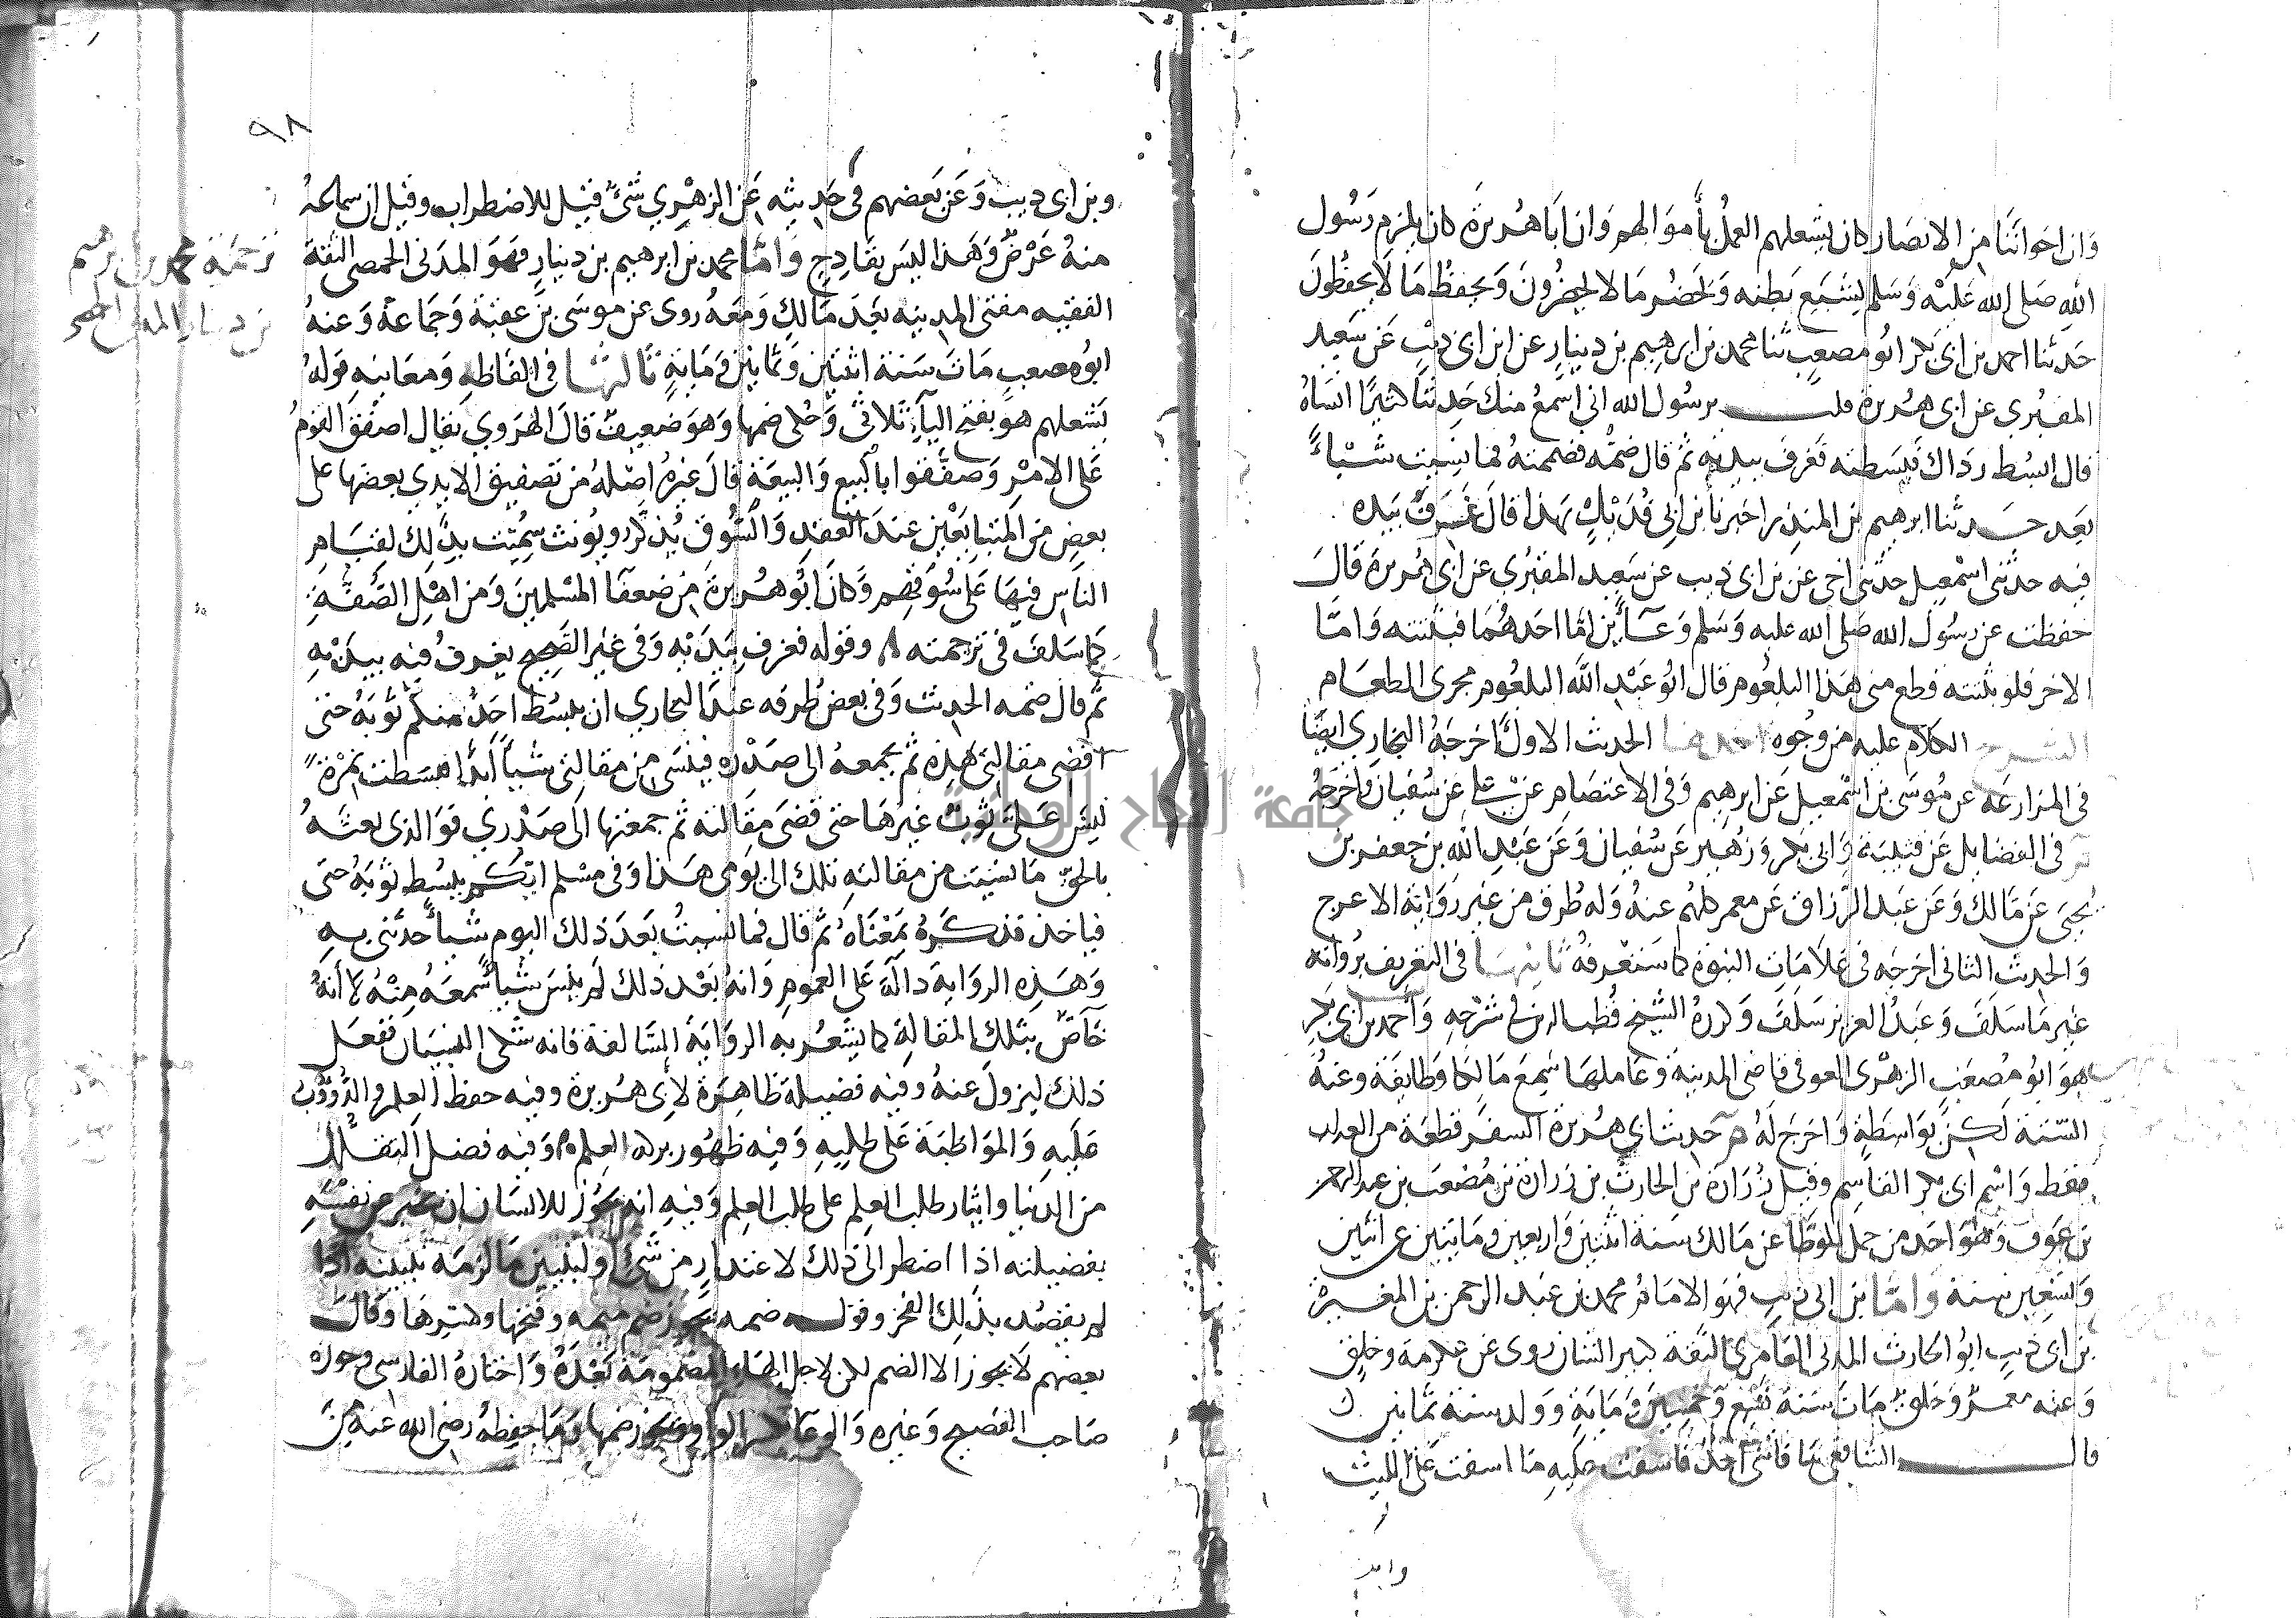 وان اخواننا من الانصار كان يشغلهم العمل بأموالهم وان ابا هريرة كان يلزم رسول
الله صلى الله عليه وسلم لشبع بطنه ويحضر ما لا يحضرون ويحفظ ما لا يحفظون
حدثنا احمد بن ابى بكر ابو مصعب ثنا محمد بن ابرهيم بن دينار عن ابن ابى ذيب عن سعيد
المقبرى عن ابى هريرة قلت يرسول الله انى اسمع منك حديثا كثيرا انساه
قال ابسط رداك فبسطته فغرف بيديه ثم قال ضمه فضممته فما نسيت شيا
بعد حدثنا ابرهيم بن المنذر اخبرنا بن ابى فديك بهذا قال غرف بيده
فيه حدثنى اسمعيل حدثنى اخى عن بن ابى ذيب عن سعيد المقبرى عن ابى هريرة قال
حفظت عن رسول الله صلى الله عليه وسلم وعآئين اما احدهما فبثثته واما
الاخر فلو بثثته قطع منى هذا البلعوم قال ابو عبد الله البلعوم مجرى الطعام
الشرح الكلام عليه من وجوه احدها الحديث الاول اخرجه البخارى ايضا
فى المزارعة عن موسى بن اسمعيل عن ابرهيم وفى الاعتصام عن على عن سفيان واخرجه
م فى الفضايل عن قتيبة وابى بكر وزهير عن سفيان وعن عبد الله بن جعفر بن
يحيى عن مالك وعن عبد الرزاق عن معمر كلهم عنه وله طرق من غير رواية الاعرج
والحديث الثانى اخرجه فى علامات النبوة كما ستعرفه ثانيها فى التعريف برواته
غير ما سلف وعبد العزيز سلف وكرره الشيخ قطب الدين فى شرحه واحمد بن ابى بكر
هو ابو مصعب الزهرى العوفى قاضى المدينة وعاملها سمع مالكا وطايفة وعنه
الستة لكن س بواسطة واخرج له م حديث ابى هريرة السفر قطعة من العذاب
فقط واسم ابى بكر القاسم وقيل زرارة بن الحارث بن زرارة بن مصعب بن عبد الرحمن
بن عوف وهو احد من حمل الموطا عن مالك مات سنة اثنتين واربعين ومايتين عن اثنين
وتسعين سنة واما بن ابى ذيب فهو الامام محمد بن عبد الرحمن بن المغيرة
بن ابى ذيب ابو الحارث المدنى العامرى الثقة كبير الشان روى عن عكرمة وخلق
وعنه معمر وخلق مات سنة تسع وخمسين وماية وولد سنة ثمانين
قال الشافعى ما فاتنى احد فاسفت عليه ما اسفت على الليث
وابن
٩٨
وبن ابى ذيب وعن بعضهم فى حديثه عن الزهرى شئ قيل للاضطراب وقيل ان سماعه
منه عرض وهذا ليس بقادح واما محمد بن ابرهيم بن دينار فهو المدنى الحمصى الثقة
ترجمة محمد بن ابرهيم
بن دينار المدنى
الفقيه مفتى المدينة بعد مالك ومعه روى عن موسى بن عقبة وجماعة وعنه
ابو مصعب مات سنة اثنتين وثمانين وماية ثالثها فى الفاظه ومعانيه قوله
يشغلهم هو بفتح الياء ثلاثى وحكى ضمها وهو ضعيف قال الهروى يقال اصفق القوم
على الامر وصفقوا بالبيع والبيعة قال غيره اصله من تصفيق الايدى بعضها على
بعض من المتبايعين عند العقد والسوق يذكر ويونث سميت بذلك لقيام
الناس فيها على سوقهم وكان ابو هريرة من ضعفا المسلمين ومن اهل الصفة
كما سلف فى ترجمته وقوله فغرف بيديه وفى غير الصحيح يغرف فيه بيديه
ثم قال ضمه الحديث وفى بعض طرقه عند البخارى ان يبسط احد منكم ثوبه حتى
اقضى مقالتى هذه ثم يجمعه الى صدره فينسى من مقالتى شيا ابدا فبسطت نمرة
ليس على ثوب غيرها حتى قضى مقالته ثم جمعتها الى صدرى فوالذى بعثه
بالحق ما نسيت من مقالته تلك الى يومى هذا وفى مسلم ايكم يبسط ثوبه حتى
فياخذ فذكره بمعناه ثم قال فما نسيت بعد ذلك اليوم شيا حدثنى به
وهذه الرواية دالة على العموم وانه بعد ذلك لم ينس شيا سمعه منه لا انه
خاص بتلك المقالة كما يشعر به الرواية السالفة فانه شكى النسيان ففعل
ذلك ليزول عنه وفيه فضيلة ظاهرة لابى هريرة وفيه حفظ العلم والدؤوب
عليه والمواظبة على طلبه وفيه ظهور بركة العلم وفيه فضل التقلل
من الدنيا وايثار طلب العلم على طلب وفيه انه يجوز للانسان ان يخبر عن نفسه
بفضيلته اذا اضطر الى ذلك لاعتذار من شئ او لتبيين ما لزمه تبيينه اذا
لم يقصد بذلك الفخر وقوله ضمه يجوز ضم ميمه وفتحها وكسرها وقال
بعضهم لا يجوز الا الضم لاجل الهاء المضمومة بعده واختاره الفارسى وجوزه
صاحب الفصيح وغيره والوعا بكسر الواو ويجوز ضمها وما حفظه رضى الله عنه من
جامعة النجاح الوطنية